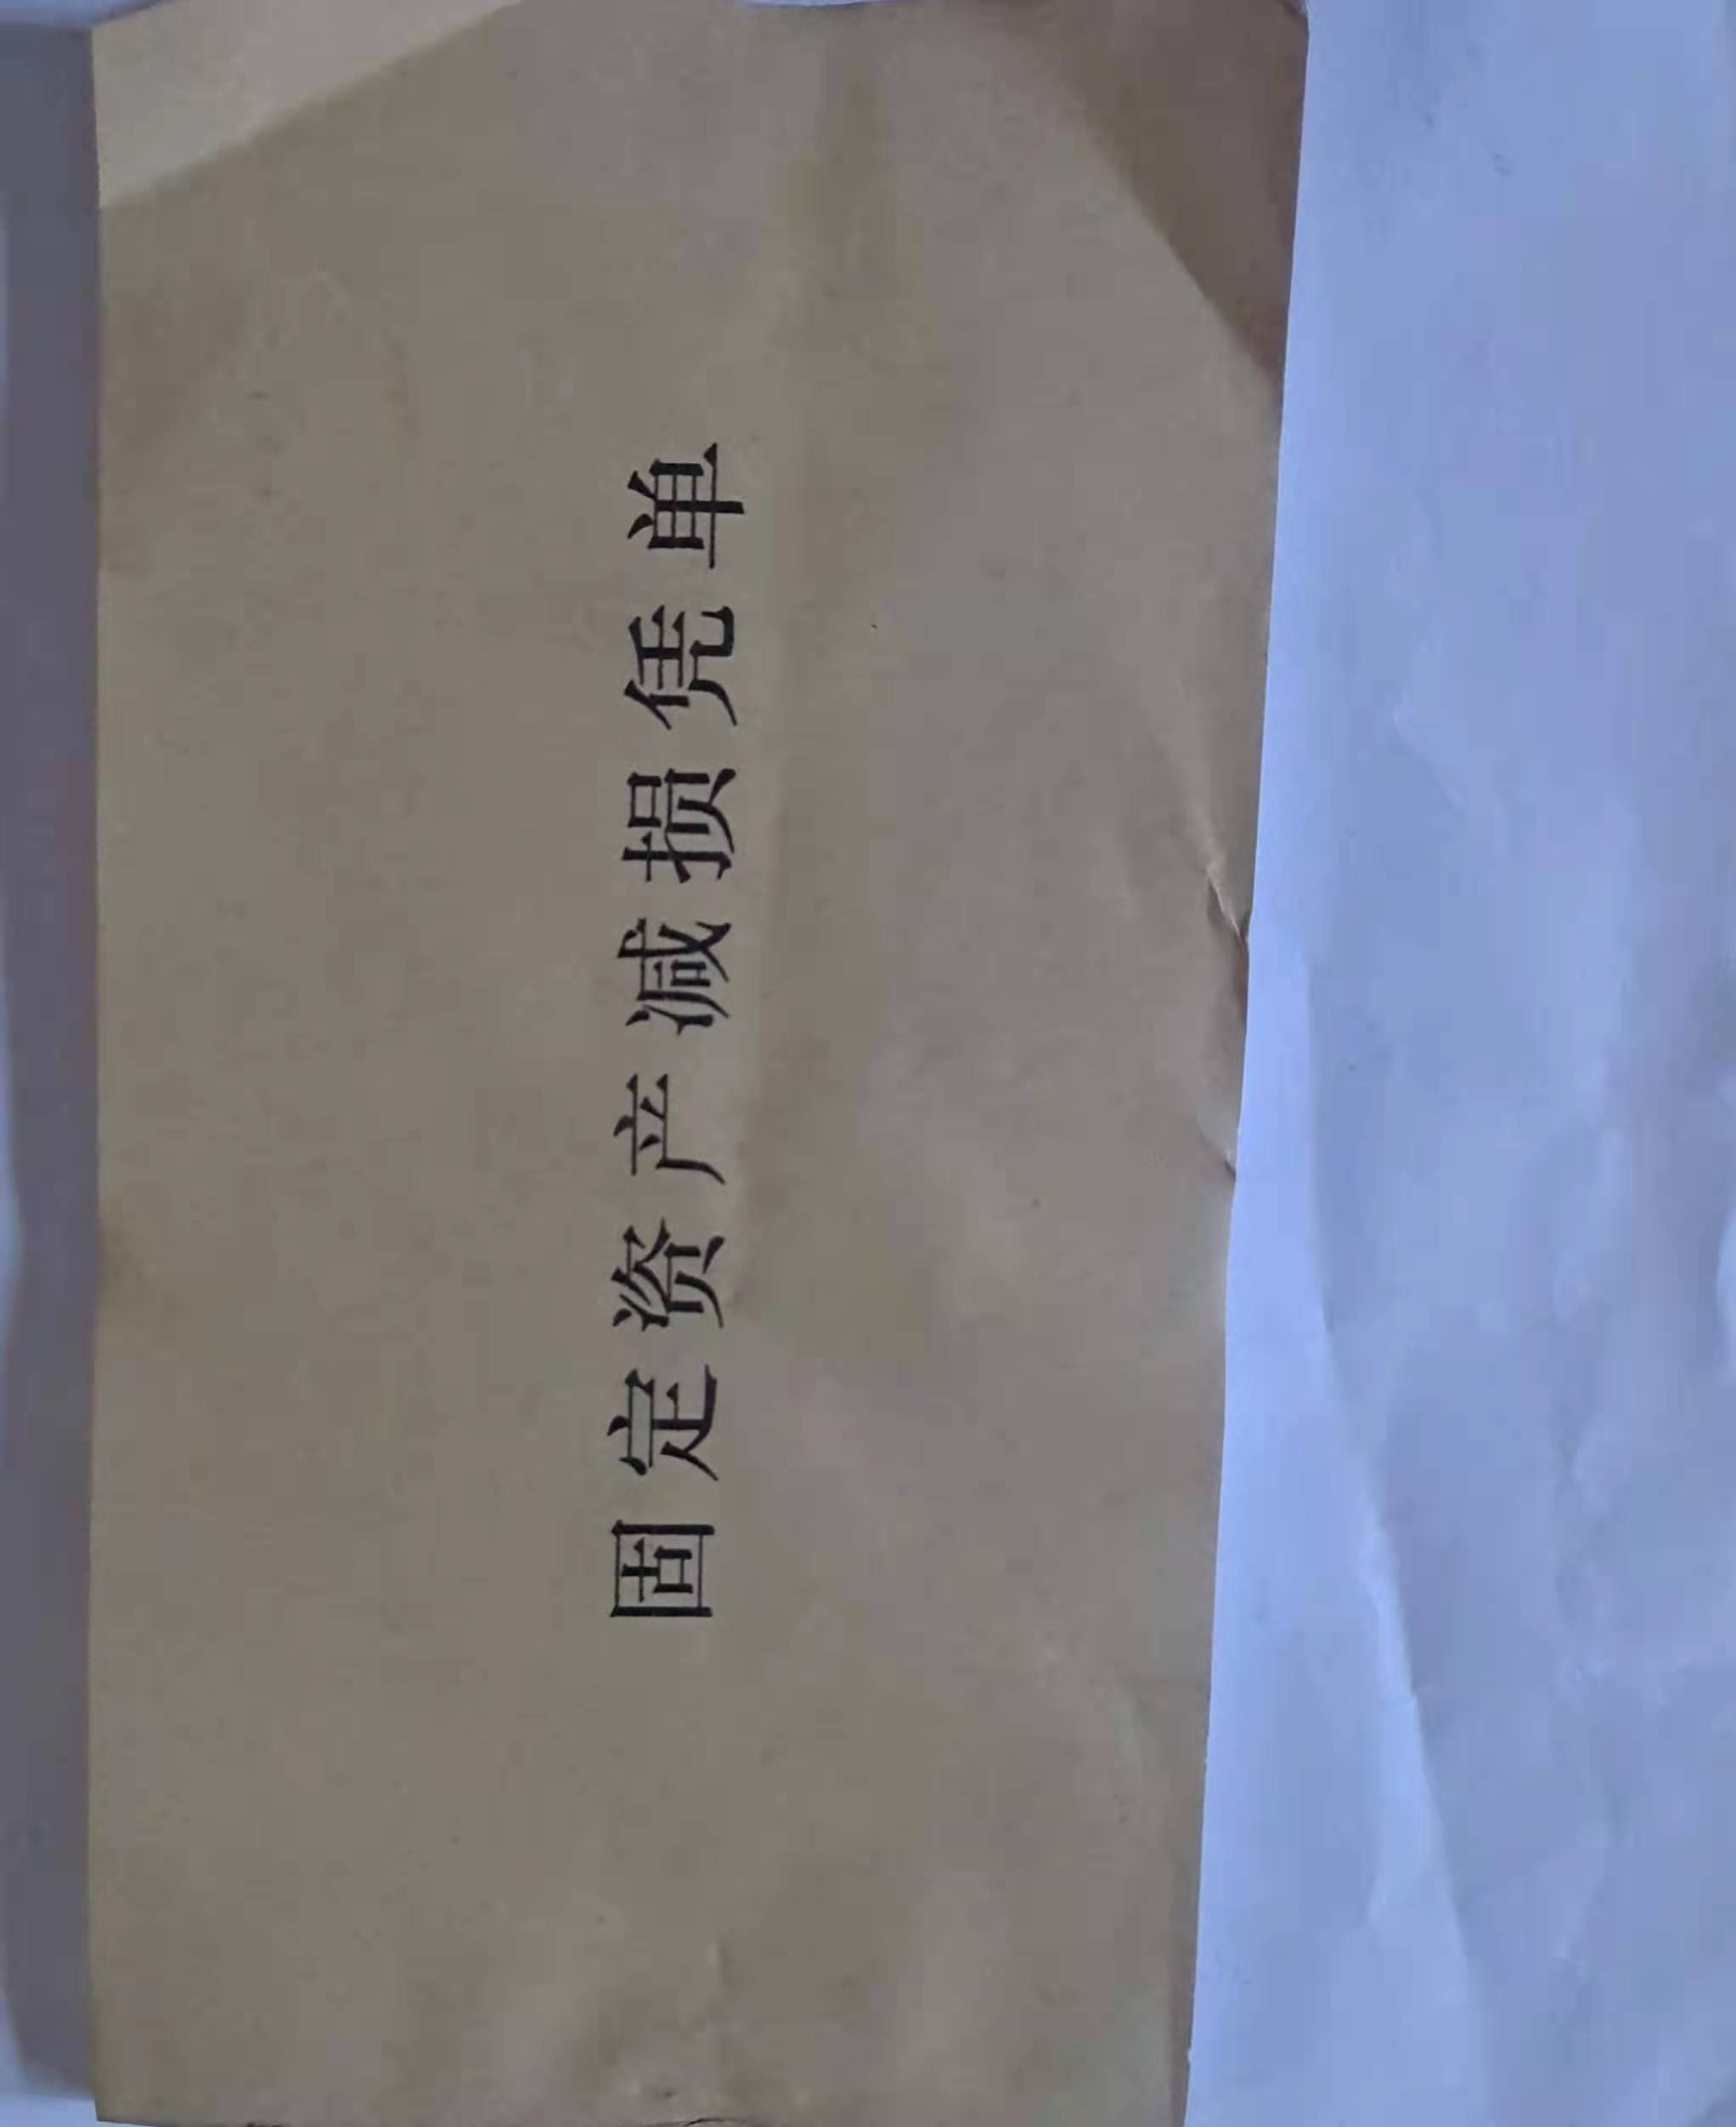 固定资产减损凭单